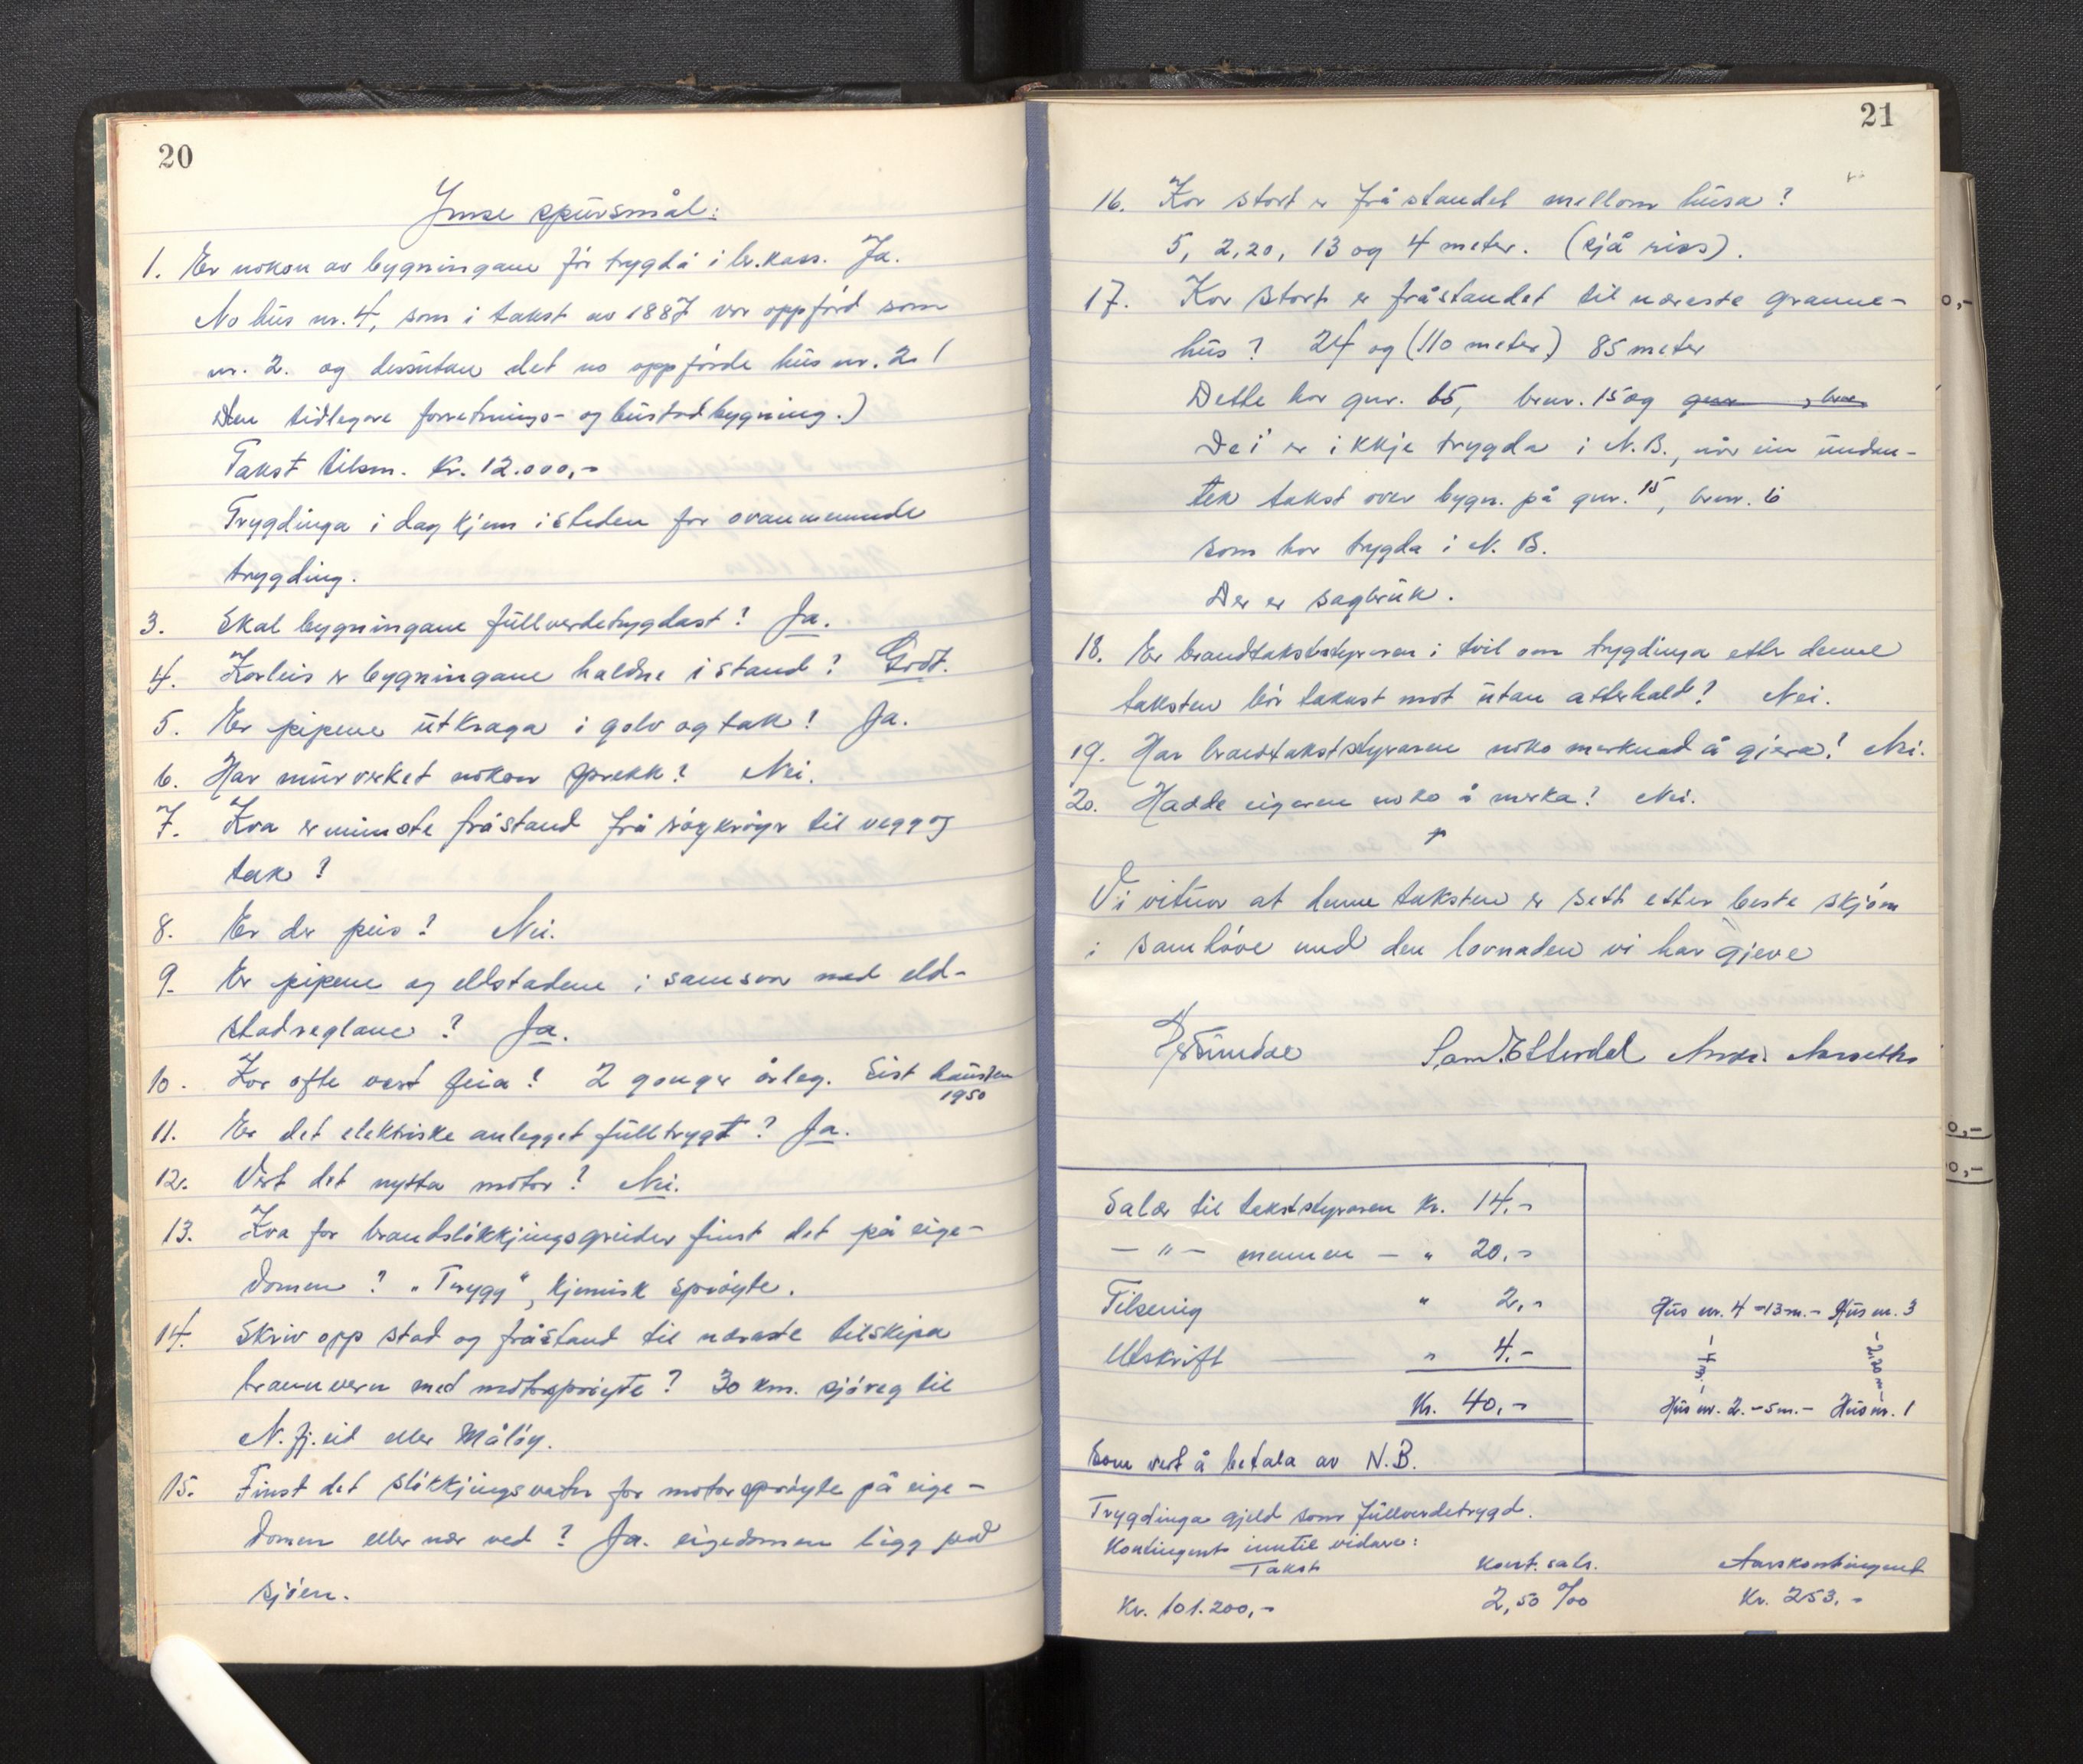 20
Ymse spursmål:
1. Er nokon av bygningane før trygda i br.kass. Ja.
No hus nr. 4, som i takst av 1887 var oppførd som
nr. 2. og dessutan det no oppførde hus nr. 2 (
Den tidlegare forretnings- og bustadbygning.)
Takst tilsm. kr. 12.000,-
Trygdinga i dag kjem isteden for ovannemnde
trygding.
3. Skal bygningane fullverdetrygdast? Ja.
4. Korleis er bygningane haldne i stand? Godt.
5. Er pipene utkraga i golv og tak? Ja.
6. Har murverket nokon sprekk? Nei.
7. Kva er minste fråstand frå røykrøyr til vegg og
tak?
8. Er der peis? Nei.
9. Er pipene og eldstadene i samsvar med eld-
stadreglane? Ja.
10. Kor ofte vert feia? 2 gonger årleg. Sist hausten
1950
11. Er det elektriske anlegget fulltrygt? Ja.
12. Vert det nytta motor? Nei.
13. Kva for brandsløkkjingsgreider finst det på eige-
domen? "Trygg", kjemisk sprøyte.
14. Skriv opp stad og fråstand til næraste tilskipa
brannvern med motorsprøyte? 30 km. sjøveg til
N.fj.eid eller Måløy.
15. Finst det sløkkjingsvatn for motorsprøyte på eige-
domen eller nær ved? Ja. eigedomen ligg ved
sjøen.
21
16. Kor stort er fråstandet mellom husa?
5, 2,20, 13 og 4 meter. (sjå riss).
17. Kor stort er fråstandet til næreste granne-
hus? 24 og (110 meter) 85 meter
Dette har gnr. 15, bnr. 15 og gnr , bnr.
Dei er ikkje trygda i N.B., når ein undan-
tek takst over bygn. på gnr. 15, bnr. 6
som har trygda i N.B.
Der er sagbruk.
18. Er brandtakststyraren i tvil om trygdinga etter denne
taksten bør takast mot utan atterhald? Nei.
19. Har brandtakststyraren noko merknad å gjera? Nei.
20. Hadde eigaren noko å merka? Nei.
Vi vitnar at denne taksten er sett etter beste skjøn
i samhøve med den lovnaden vi har gjeve
Sam. Etterdal
Salær til takststyraren kr. 14,-
- " - mennene - " 20,-
Tilsenig " 2,-
Utskrift " 4,-
Kr. 40,-
Som vert å betala av N.B.
Hus nr. 4 - 13 m. - Hus nr. 3
4 m.
2,20 m
Hus nr. 2. - 5 m. - Hus nr. 1
Trygdinga gjeld som fullverdetrygd.
Kontingent inntil vidare:
Takst Kont. sats. Aarskontingent
Kr. 101.200,- 2,50 ‰ Kr. 253.-